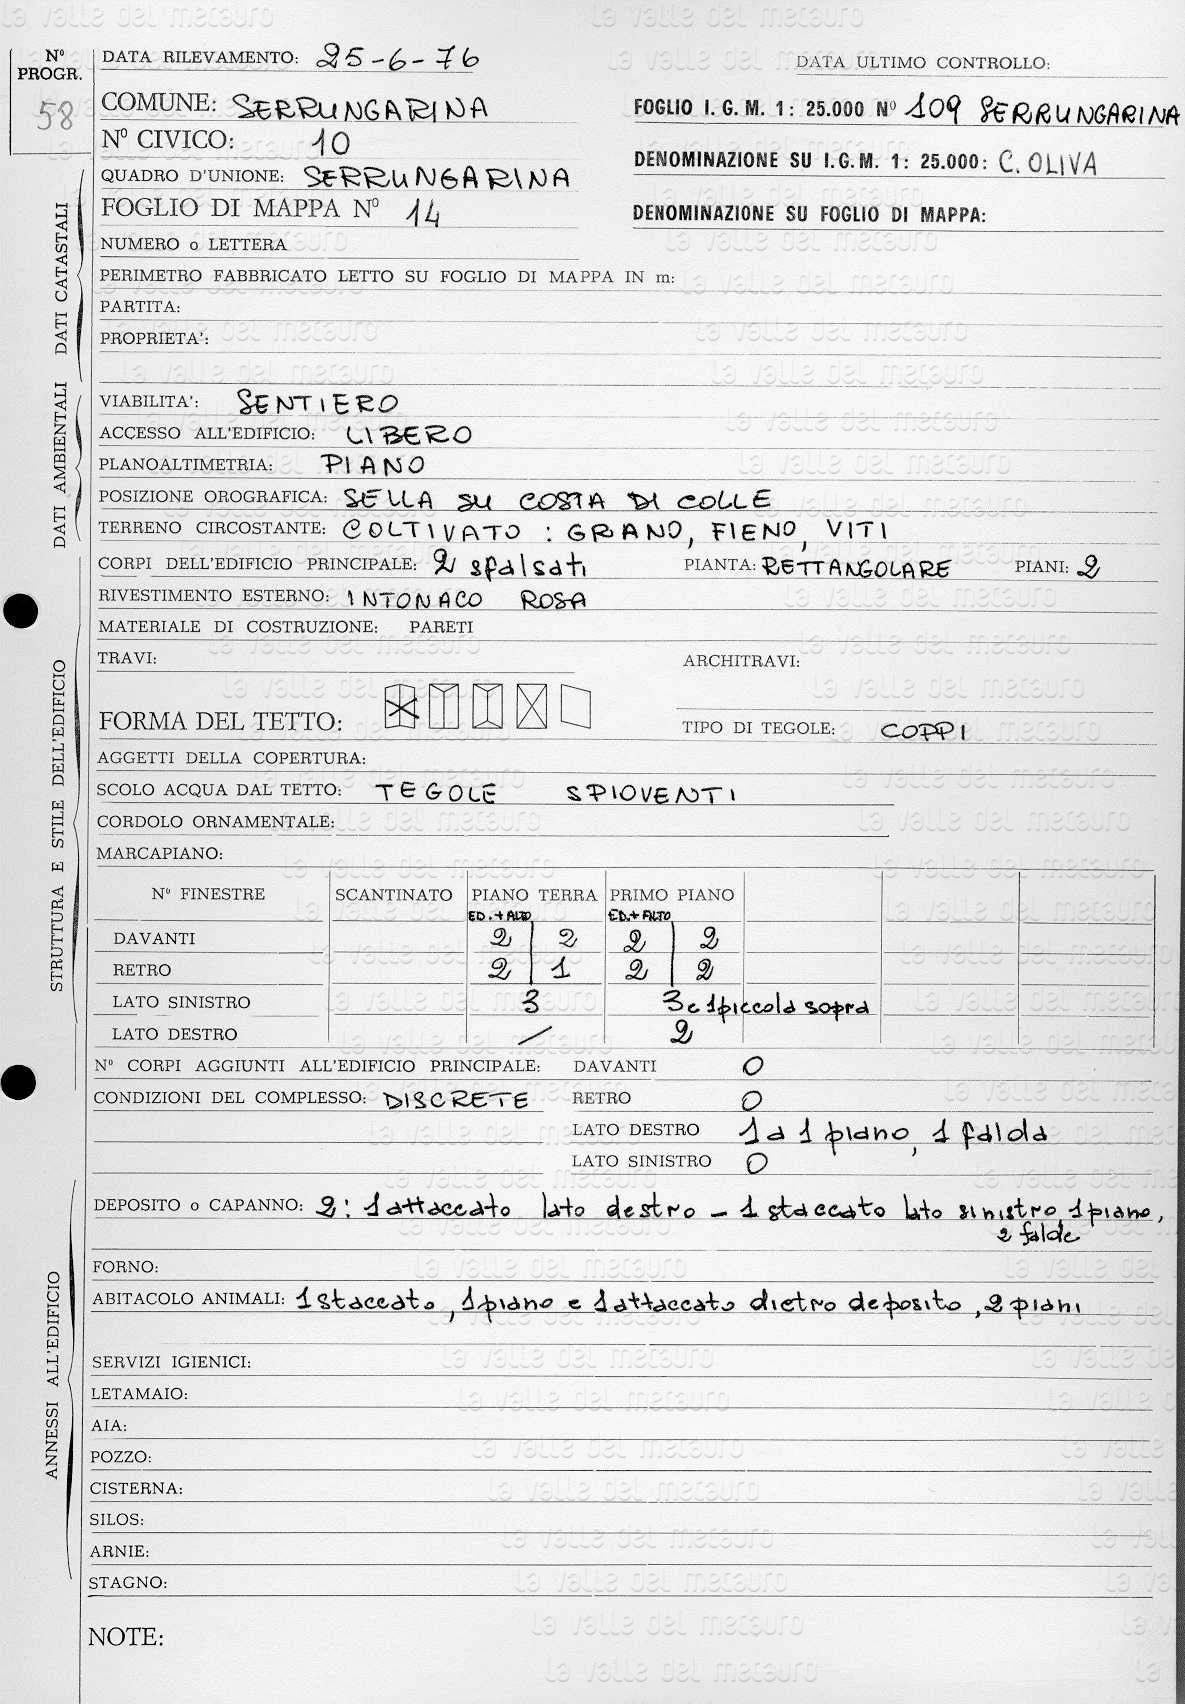 Nº PROGR. 58
DATA RILEVAMENTO: 25-6-76 DATA ULTIMO CONTROLLO:
COMUNE: SERRUNGARINA FOGLIO I. G. M. 1: 25.000 Nº 109 SERRUNGARINA
Nº CIVICO: 10
DENOMINAZIONE SU I.G.M. 1: 25.000: C. OLIVA
QUADRO D'UNIONE: SERRUNGARINA
FOGLIO DI MAPPA Nº 14 DENOMINAZIONE SU FOGLIO DI MAPPA:
DATI CATASTALI
NUMERO o LETTERA
PERIMETRO FABBRICATO LETTO SU FOGLIO DI MAPPA IN m:
PARTITA:
PROPRIETA':
DATI AMBIENTALI
VIABILITA': SENTIERO
ACCESSO ALL'EDIFICIO: LIBERO
PLANOALTIMETRIA: PIANO
POSIZIONE OROGRAFICA: SELLA SU COSTA DI COLLE
TERRENO CIRCOSTANTE: COLTIVATO : GRANO, FIENO, VITI
STRUTTURA E STILE DELL'EDIFICIO
CORPI DELL'EDIFICIO PRINCIPALE: 2 sfalsati PIANTA: RETTANGOLARE PIANI: 2
RIVESTIMENTO ESTERNO: INTONACO ROSA
MATERIALE DI COSTRUZIONE: PARETI
TRAVI: ARCHITRAVI:
FORMA DEL TETTO: TIPO DI TEGOLE: COPPI
AGGETTI DELLA COPERTURA:
SCOLO ACQUA DAL TETTO: TEGOLE SPIOVENTI
CORDOLO ORNAMENTALE:
MARCAPIANO:
Nº FINESTRE SCANTINATO PIANO TERRA PRIMO PIANO
ED. + ALTO ED. + ALTO
DAVANTI 2 2 2 2
RETRO 2 1 2 2
LATO SINISTRO 3 3 e 1 piccola sopra
LATO DESTRO / 2
Nº CORPI AGGIUNTI ALL'EDIFICIO PRINCIPALE: DAVANTI 0
CONDIZIONI DEL COMPLESSO: DISCRETE RETRO 0
LATO DESTRO 1 a 1 piano, 1 falda
LATO SINISTRO 0
ANNESSI ALL'EDIFICIO
DEPOSITO o CAPANNO: 2: 1 attaccato lato destro - 1 staccato lato sinistro, 1 piano,
2 falde
FORNO:
ABITACOLO ANIMALI: 1 staccato, 1 piano e 1 attaccato dietro deposito, 2 piani
SERVIZI IGIENICI:
LETAMAIO:
AIA:
POZZO:
CISTERNA:
SILOS:
ARNIE:
STAGNO:
NOTE:
la valle del metauro